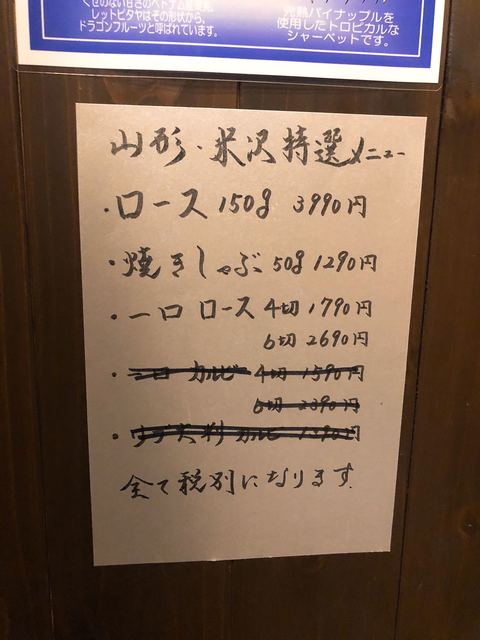 くせのない甘さのベトナム産果実。
レッドピタヤはその形状から、
ドラゴンフルーツと呼ばれています。
完熟パイナップルを
使用したトロピカルな
シャーベットです。
山形・米沢特選メニュー
・ロース 150g 3990円
・焼きしゃぶ 50g 1290円
・一口 ロース 4切 1790円
6切 2690円
・一口 カルビ 4切 1590円
6切 2390円
大判 カルビ
全て税別になります。